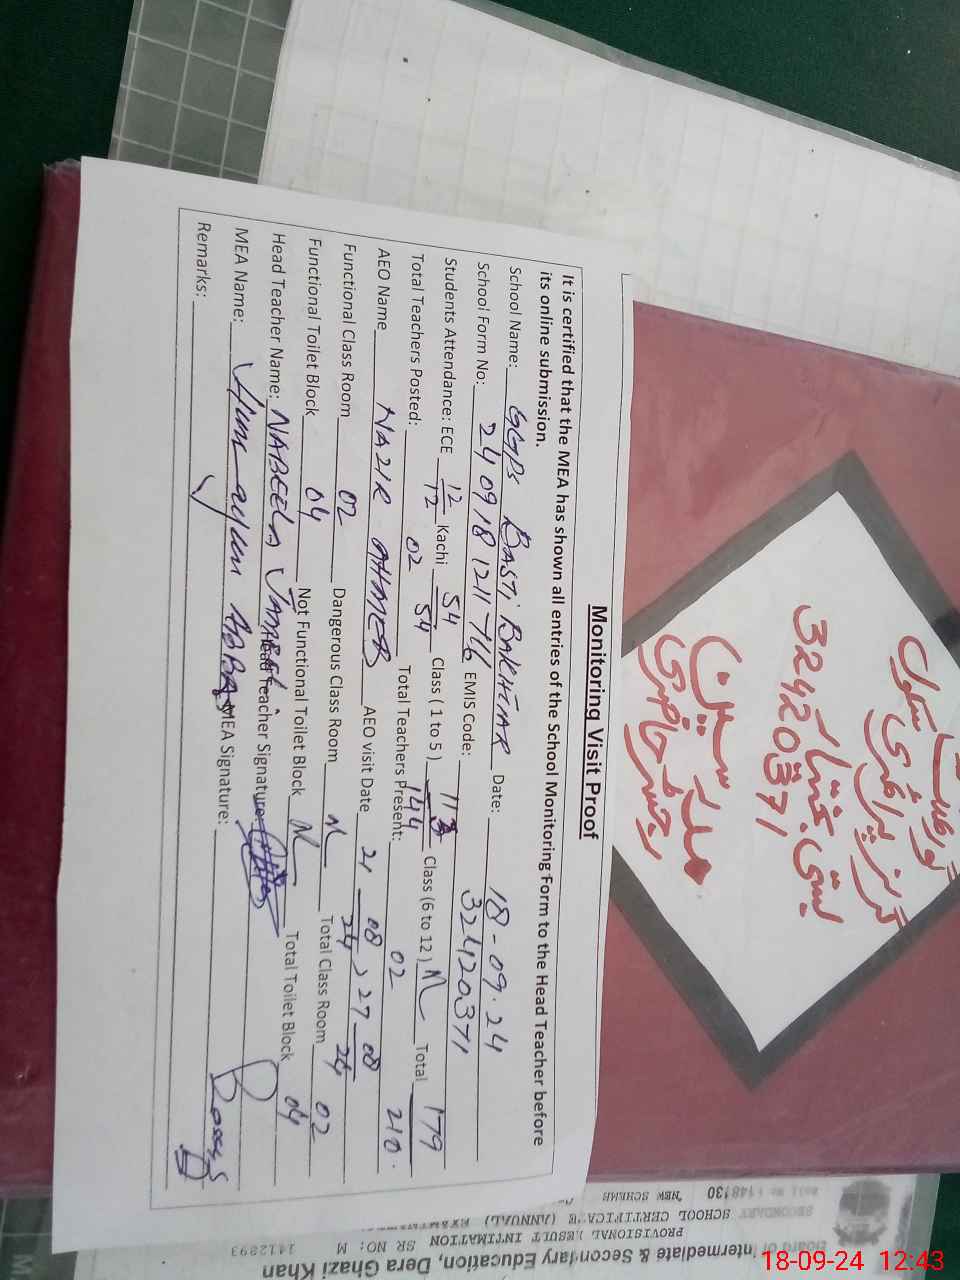 Monitoring Visit Proof
It is certified that the MEA has shown all entries of the School Monitoring Form to the Head Teacher before
its online submission.
School Name: GGPS BASTI BAKHTIAR Date: 18-09-24
School Form No: 240918121176 EMIS Code: 32420371
Students Attendance: ECE 12/12 Kachi 54/54 Class (1 to 5) 113/144 Class (6 to 12) N Total 179/210
Total Teachers Posted: 02 Total Teachers Present: 02
AEO Name NAZIR AHMED AEO visit Date 21-08-24, 27-08-24
Functional Class Room 02 Dangerous Class Room N Total Class Room 02
Functional Toilet Block 04 Not Functional Toilet Block N Total Toilet Block 04
Head Teacher Name: NABEELA Head Teacher Signature
MEA Name: Humayun ABBAS MEA Signature:
Remarks:
گورنمنٹ
گرلز پرائمری سکول
بستی بختیار
32420371
رجسٹر حاضری
Board of Intermediate & Secondary Education, Dera Ghazi Khan
PROVISIONAL RESULT INTIMATION SR NO: M 1412893
SECONDARY SCHOOL CERTIFICATE (ANNUAL) EXAMINATION
NEW SCHEME
18-09-24 12:43